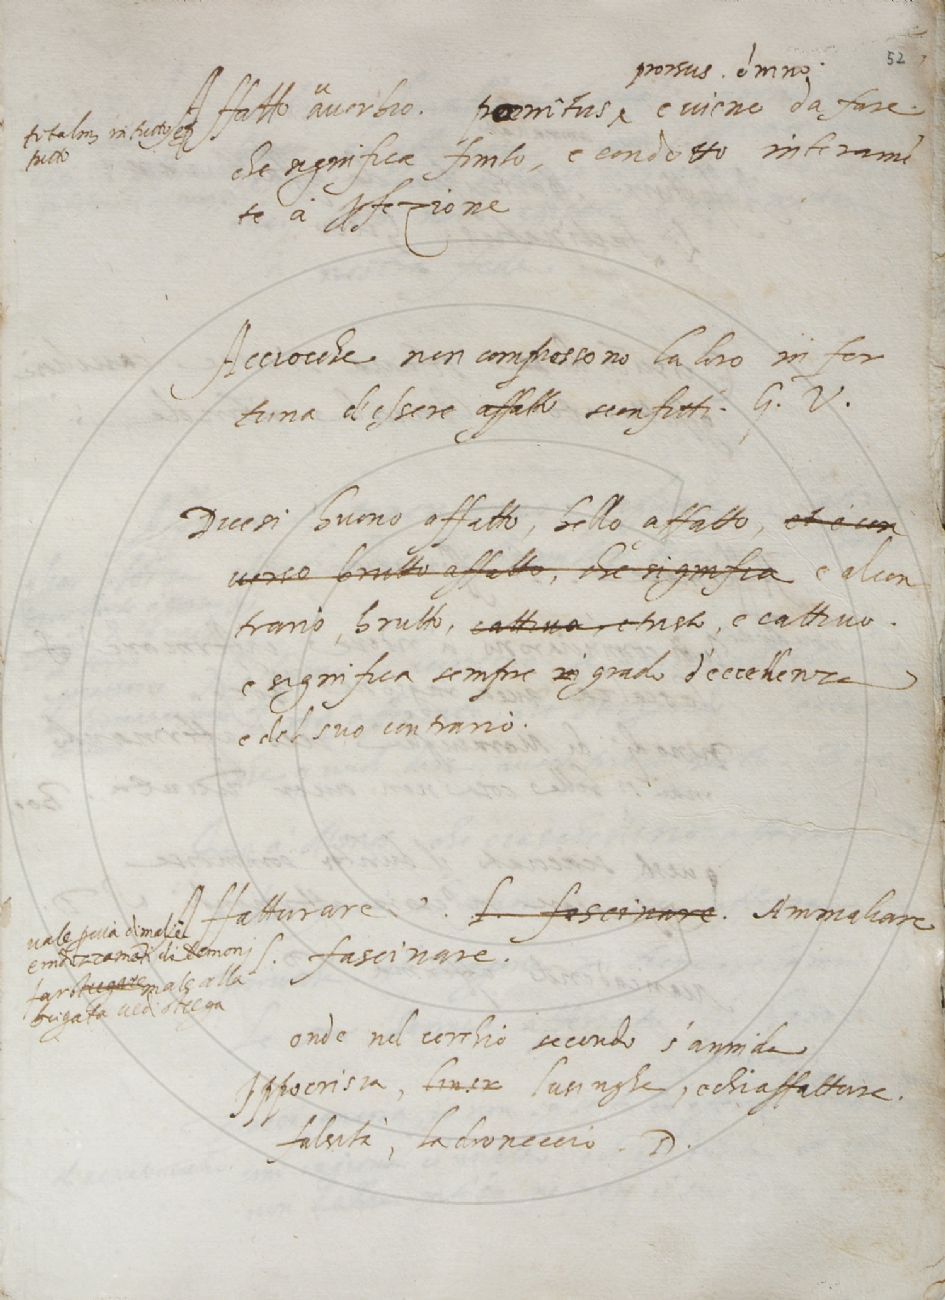 52
prorsus. omino.
Affatto averbio. penitus, e viene da fare.
totalm. in tutto et
tutto
che significa finito, e condotto interamẽ
te à pfezione
Acciocche non compossono la loro in for
tuna d'essere affatto sconfitti. G. V.
Dicesi buono affatto, bello affatto, et è con
verso brutto affatto, che significa e al con
trario, brutto, cattivo, e tristo, e cattivo.
e significa sempre grado d'eccellenza
e del suo contrario.
Affatturare. L. fascinare. Ammaliare
L. fascinare.
vale p via di malie
di demonj
far male alla
brigata vedi strega
onde nel cerchio secondo s'annida
Ippocrisia, lusinghe, e chi affattura.
falsità, ladroneccio. D.